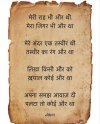 मेरी राह भी और थी,
मेरा जिगर भी और था
मेरे अंदर एक तस्वीर थी
तस्वीर का रंग और था
लिखा किसी और को
ख़याल कोई और था
अपना समझा आवाज़ दी
पलटा तो कोई और था